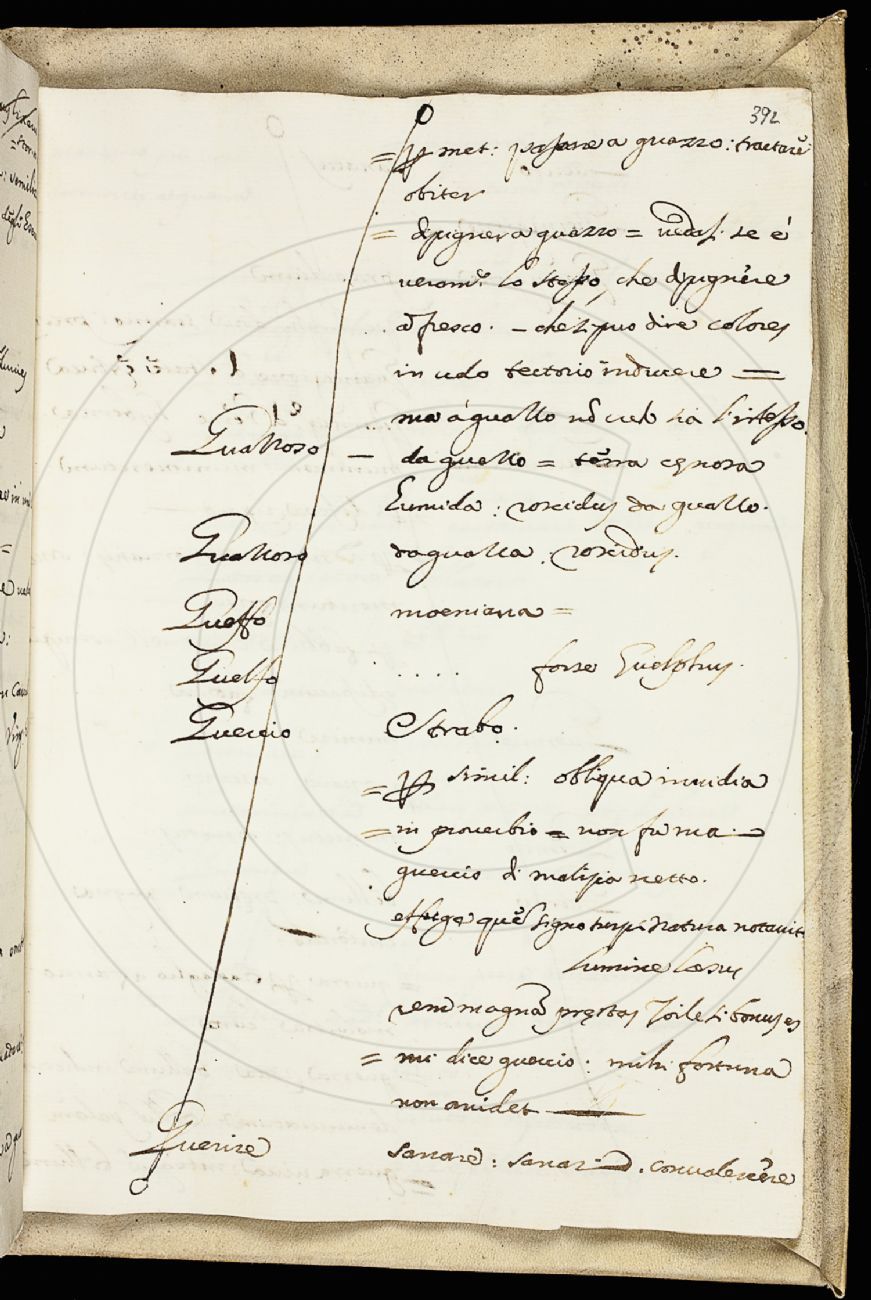 392
= p met: passare a guazzo: tractare
obiter
= dipigner a guazzo = vedasi. se é
verom.e lo stesso, che dipignere
a fresco. – che si puo dire colores
in udo tectorio inducere —
ma á guazzo nõ credo sia l'istesso.
Guazzoso — da guazzo = terra ognora
humida: roscidus da guazzo.
Guazzoso da guazza. roscidus.
Gueffo moeniana =
Guelfo .... forse Guelphus.
Guercio Strabo.
= p simil: obliqua invidia
= in proverbio = non fu mai
guercio di malizia netto.
effuge quẽ signo turpi Natura notavit
lumine laesus
rem magnã prestas Zoile si bonus es
= mi dice guercio: mihi fortuna
non arridet —
Guerire sanare: sanari. convalescere